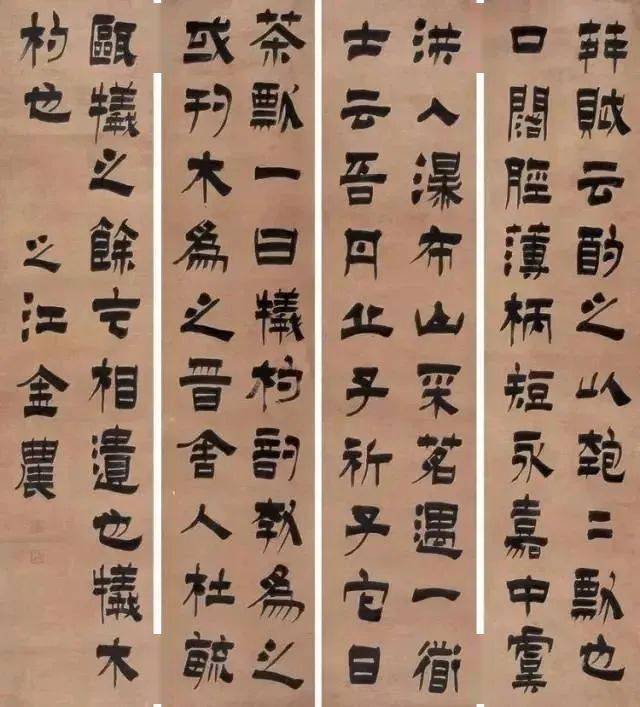 荈賦云酌之以匏二瓢也
口闊脛薄柄短永嘉中虞
洪入瀑布山采茗遇一衟
士云吾丹丘子祈子它日
茶瓢一曰犧杓剖瓠為之
或刊木為之晉舍人杜毓
甌犧之餘乞相遺也犧木
杓也 之江金農